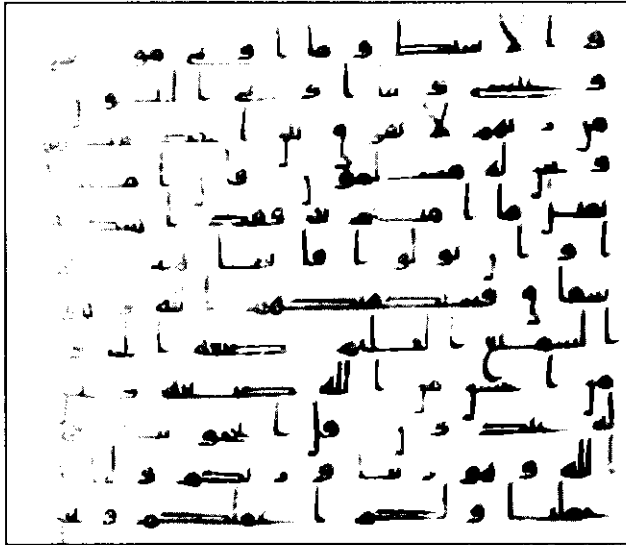 والاسباط وما اوتي موسى
وعيسى وما اوتي النبيون
من ربهم لا نفرق بين احد منهم
ونحن له مسلمون فان امنوا
بمثل ما امنتم به فقد اهتدو
ا وان تولوا فانما هم في
شقاق فسيكفيكهم الله وهو
السميع العليم صبغه الله و
من احسن من الله صبغه ونحن
له عبدون قل اتحجوننا في
الله وهو ربنا وربكم ولنا
اعملنا ولكم اعملكم ونحن